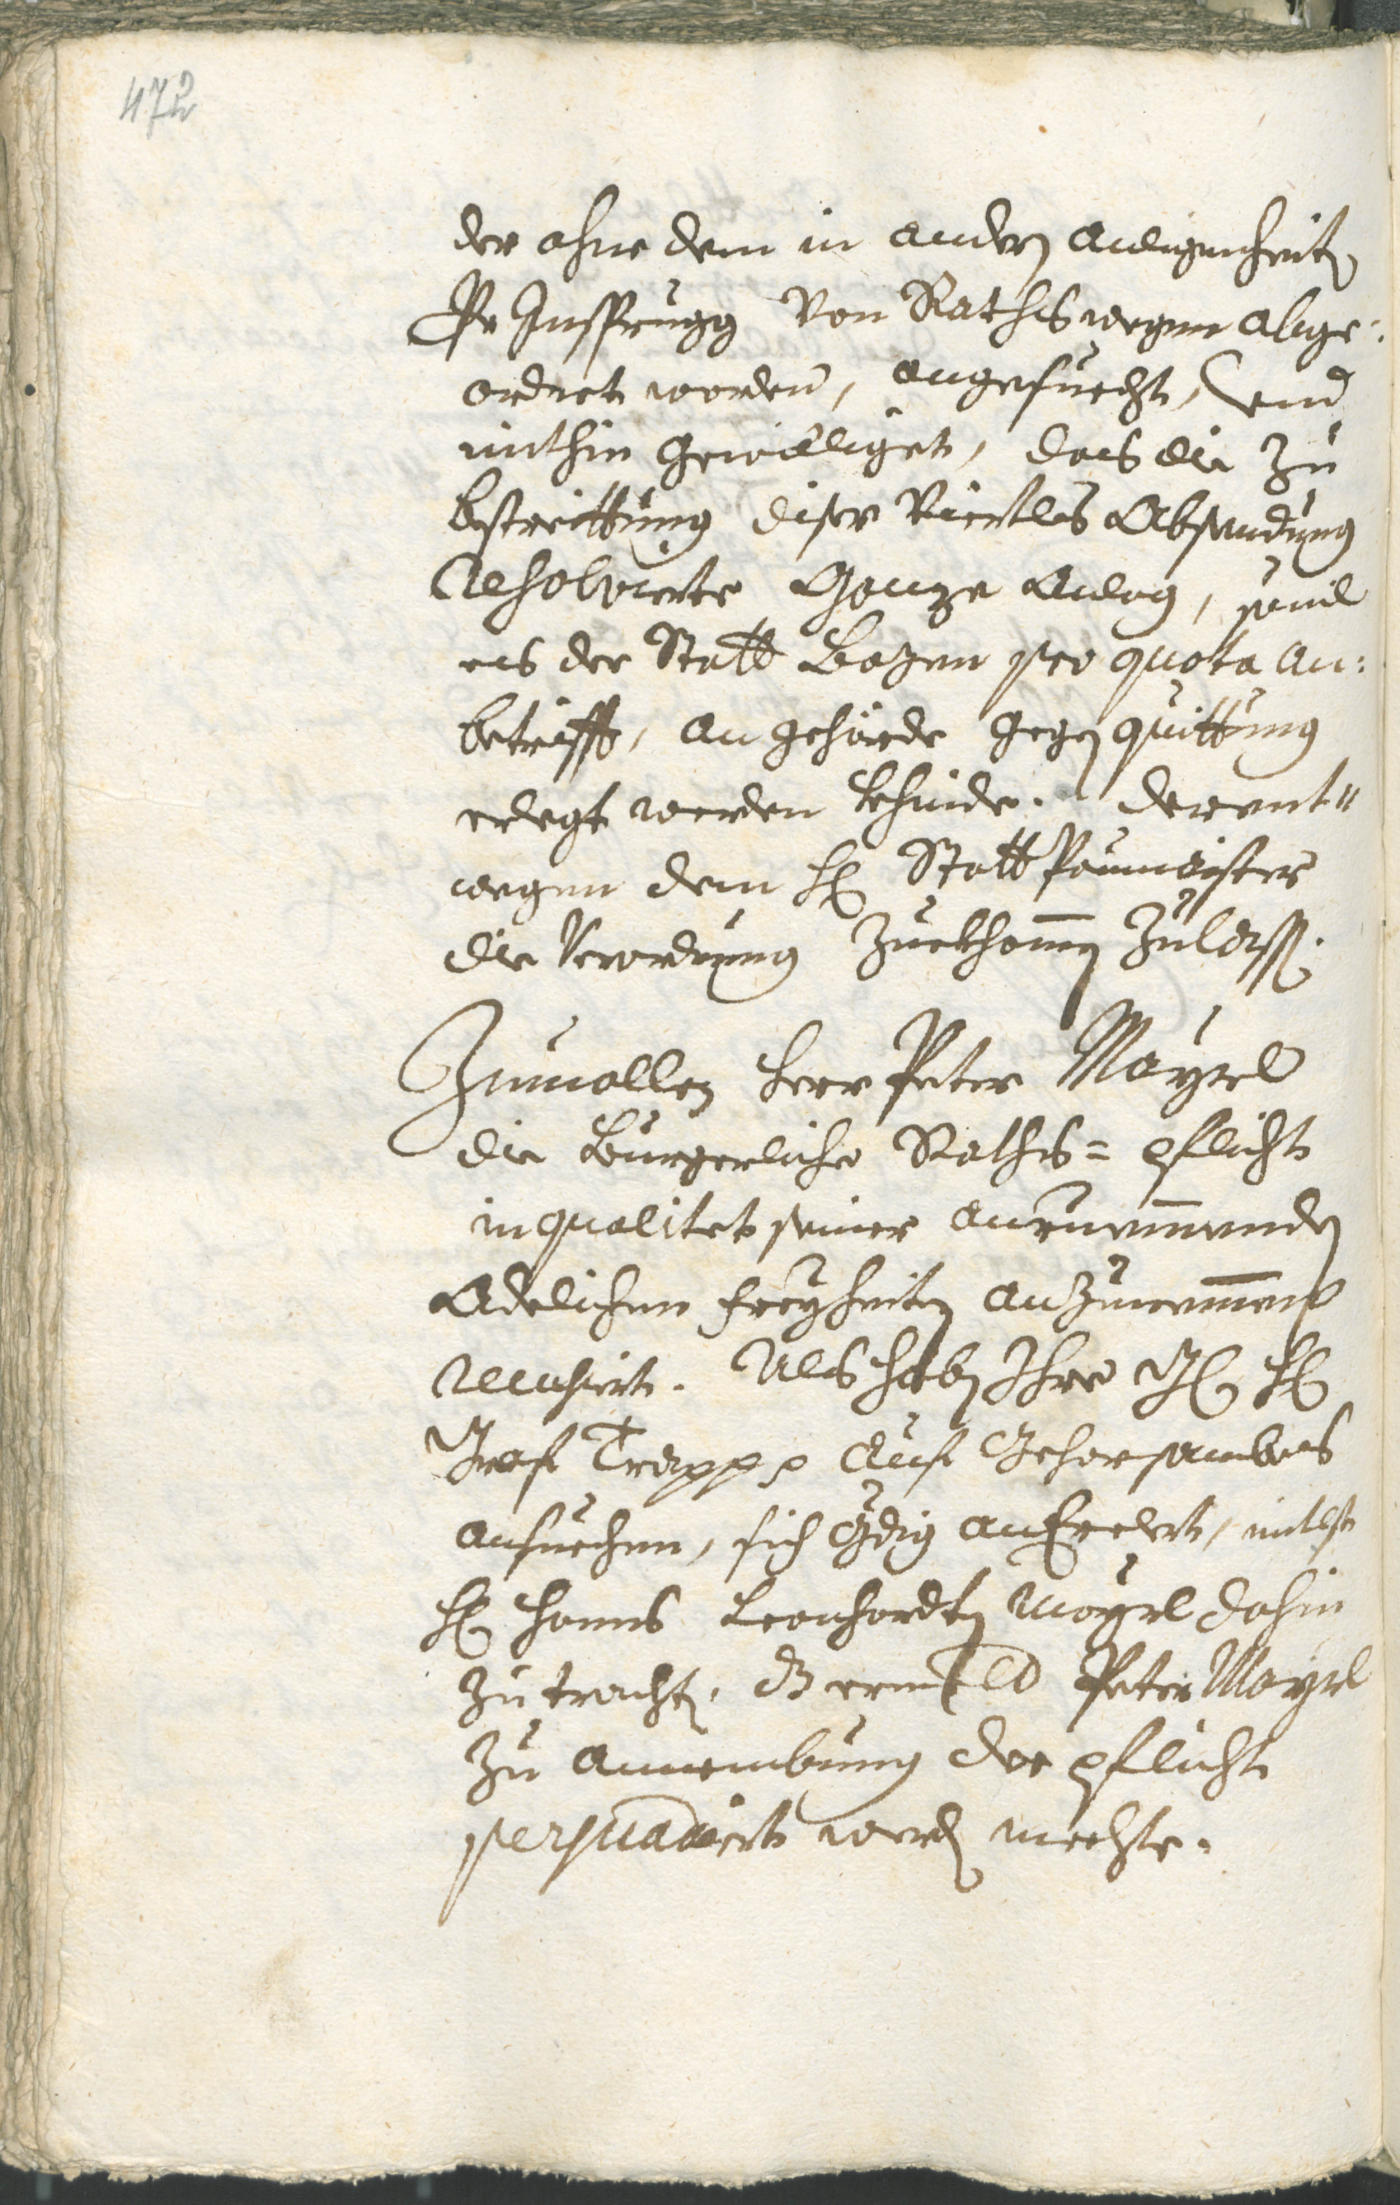 472
der ohne dem in andern anligenheiten
Per Insprugg Von Rathswegen abge-
ordnet worden, angesuecht, Vnd
mithin gewilliget, das die zu
bestreittung diser Viertls Absendung
resolvierte Ganze Anlag, souil
es der Statt Bozen pro quota an-
betrifft, an gehörde gegen quittung
erlegt werden khinde. derent-
wegen dem H: Statt Paumaister
die Verordnung zuekhomen zulassen.
Zumallen herr Peter Mayrl
die Burgerliche Raths- pflicht
in qualitet seiner anruemmenden
Adelichen freyheiten anzunemmen
recusirt. Als haben Ihro G: H:
Graf Trapp p auf Gehorsambes
ansuechen, sich gdig anErclert, mitlst
H: Hanns Leonhardten Mayrl dahin
zutrachten. dz ermelt Peter Mayrl
zu annembung der pflicht
persuadirt werden mechte.